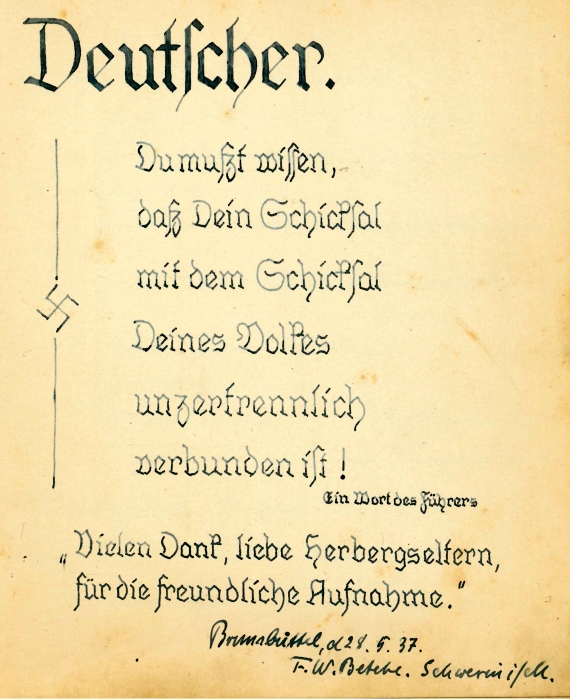 Deutscher.
Du mußt wissen,
daß Dein Schicksal
mit dem Schicksal
Deines Volkes
unzertrennlich
verbunden ist!
Ein Wort des Führers
„Vielen Dank, liebe Herbergseltern,
für die freundliche Aufnahme.“
Brunsbüttel, d 28. 5. 37.
F. W. Schwerin i/Meck.